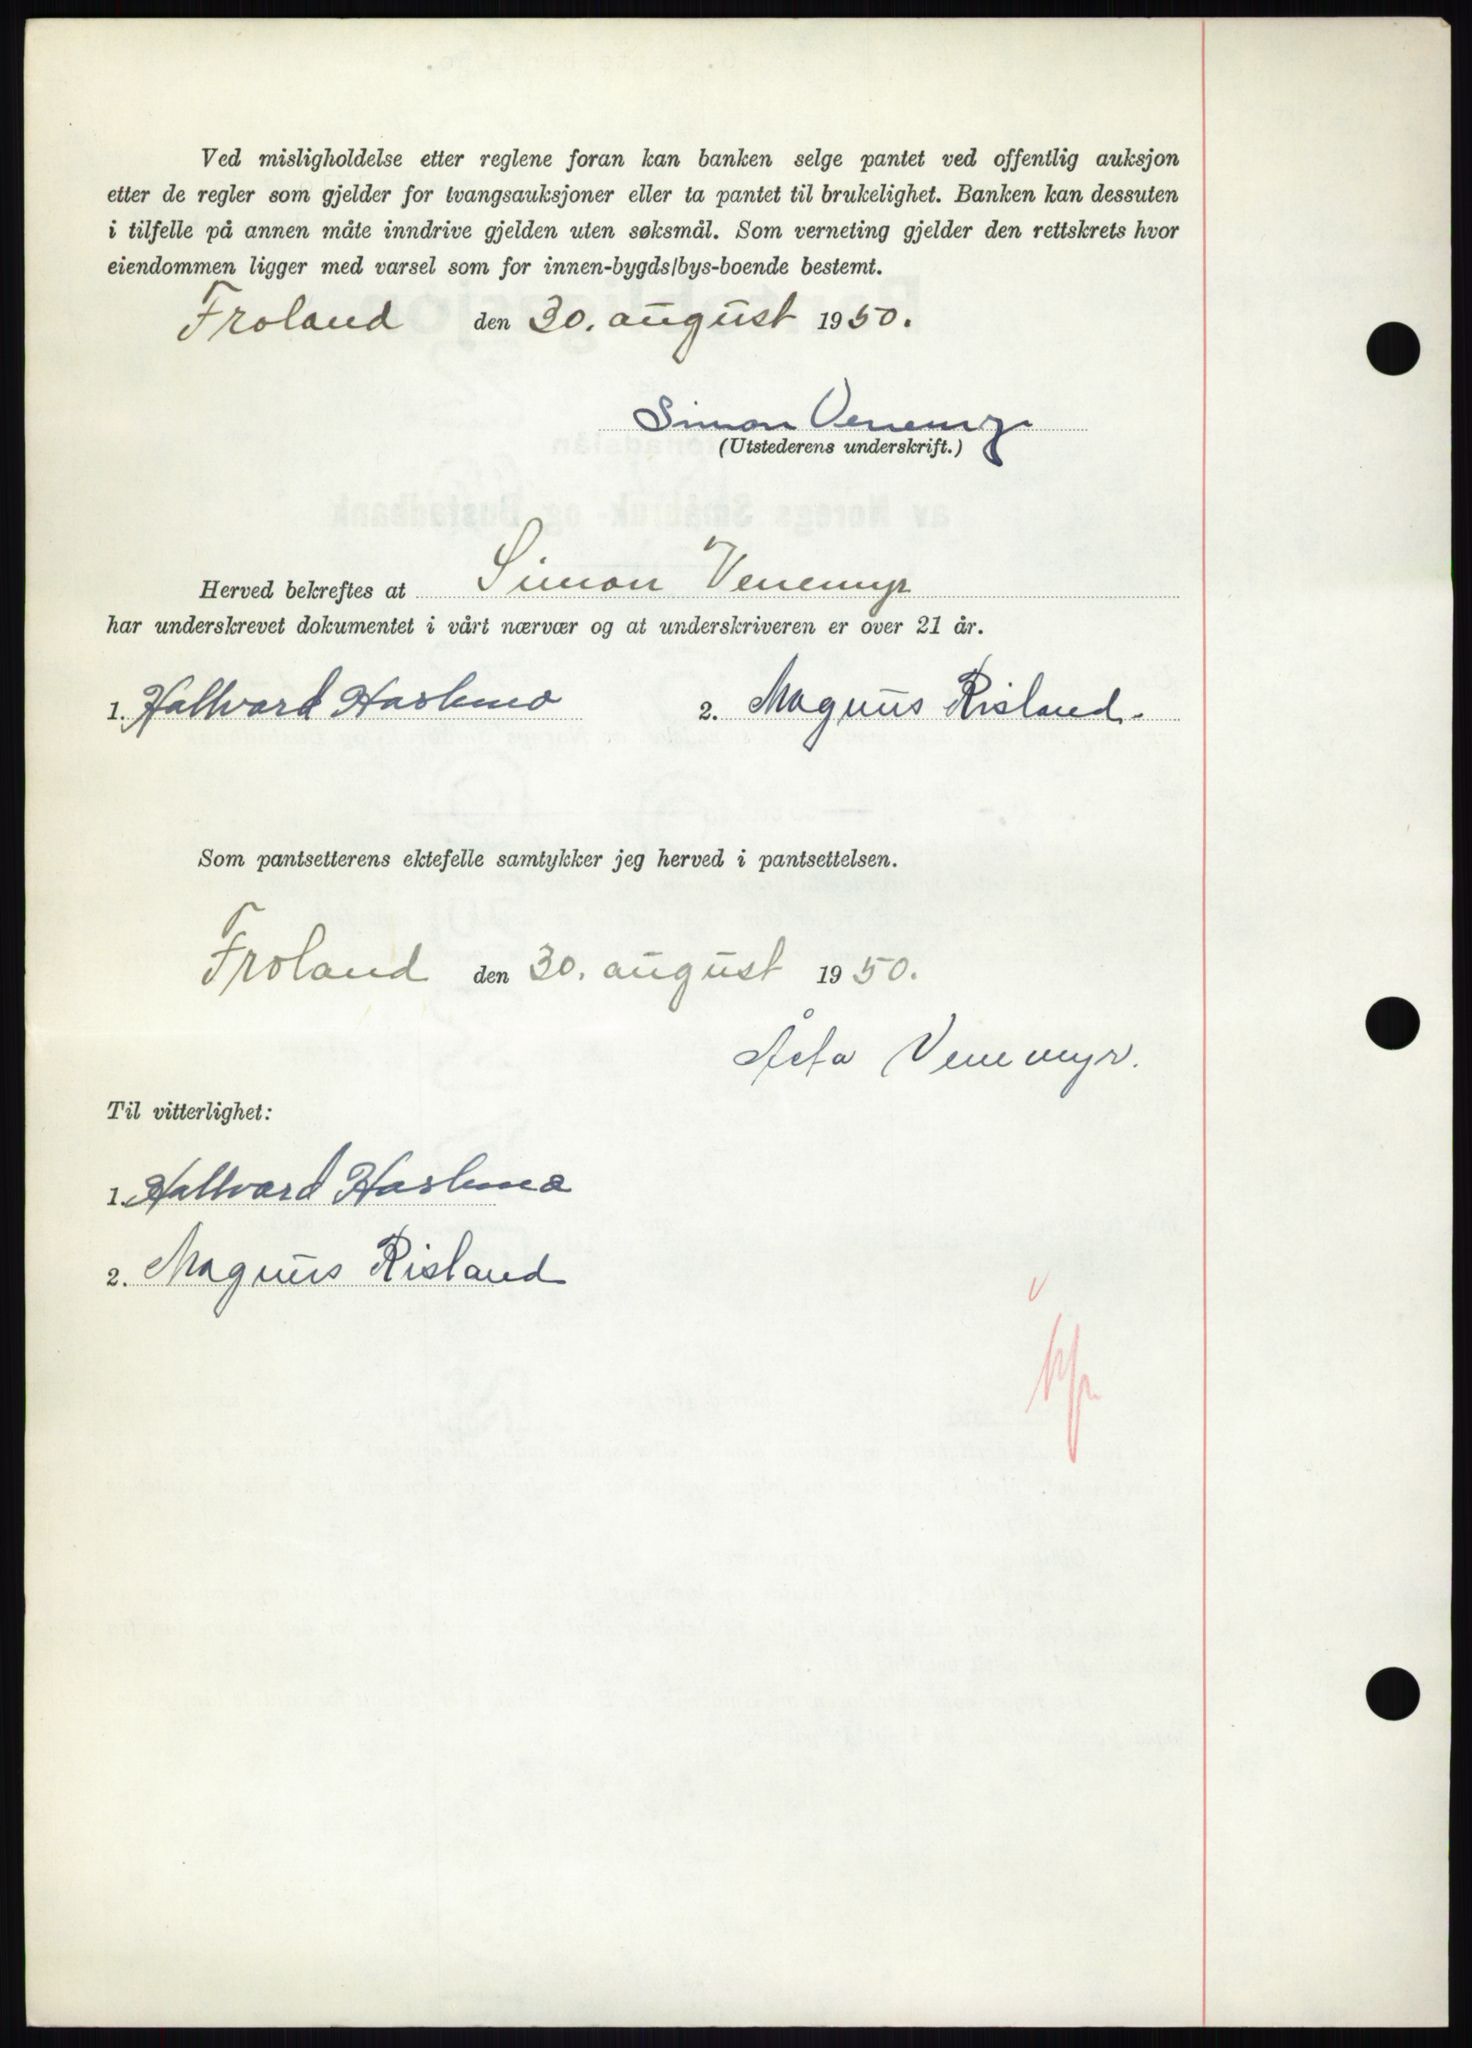 Ved misligholdelse etter reglene foran kan banken selge pantet ved offentlig auksjon
etter de regler som gjelder for tvangsauksjoner eller ta pantet til brukelighet. Banken kan dessuten
i tilfelle på annen måte inndrive gjelden uten søksmål. Som verneting gjelder den rettskrets hvor
eiendommen ligger med varsel som for innen-bygds/bys-boende bestemt.
Froland den 30. august 1950.
Simon Venemyr
(Utstederens underskrift.)
Herved bekreftes at Simon Venemyr
har underskrevet dokumentet i vårt nærvær og at underskriveren er over 21 år.
1. Hallvard Haslemo 2. Magnus Risland
Som pantsetterens ektefelle samtykker jeg herved i pantsettelsen.
Froland den 30. august 1950.
Åsta Venemyr.
Til vitterlighet:
1. Hallvard Haslemo
2. Magnus Risland